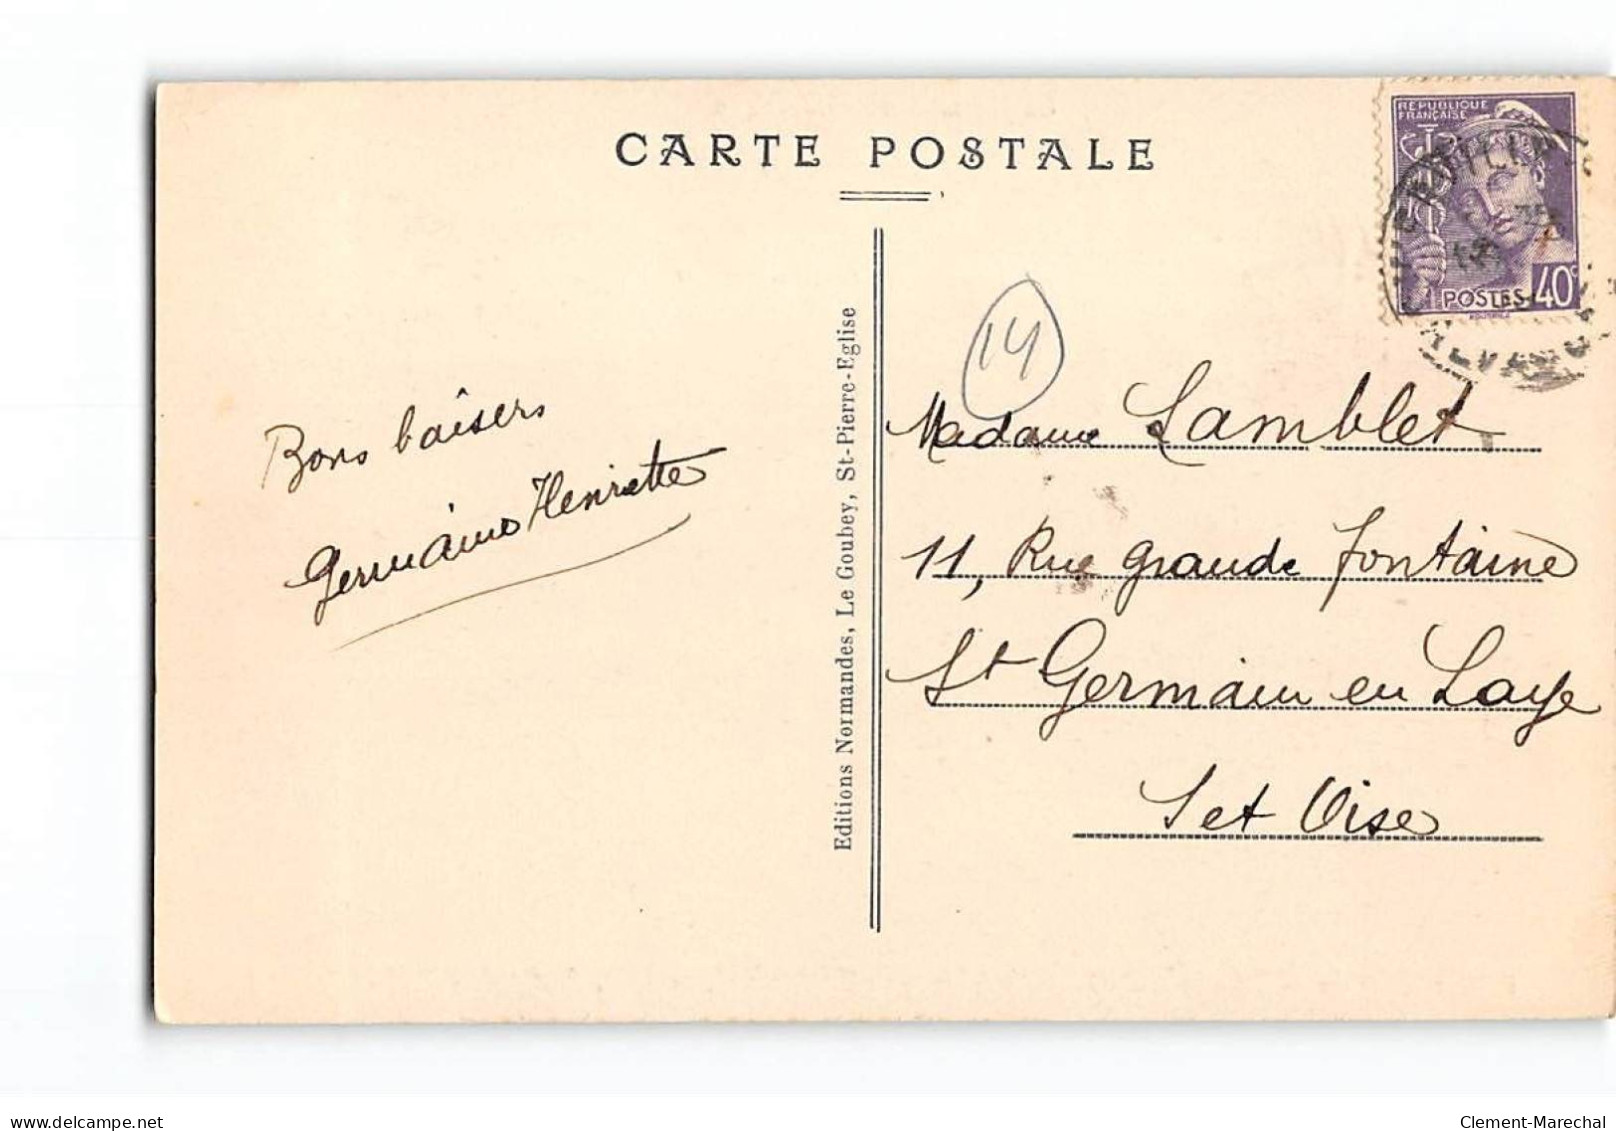 CARTE POSTALE
RÉPUBLIQUE
FRANÇAISE
POSTES 40c
14
Bons baisers
Germaine Henriette
Editions Normandes, Le Goubey, St-Pierre-Eglise
Madame Lamblet
11, Rue grande fontaine
St Germain en Laye
S et Oise
delcampe.net
Clement-Marechal